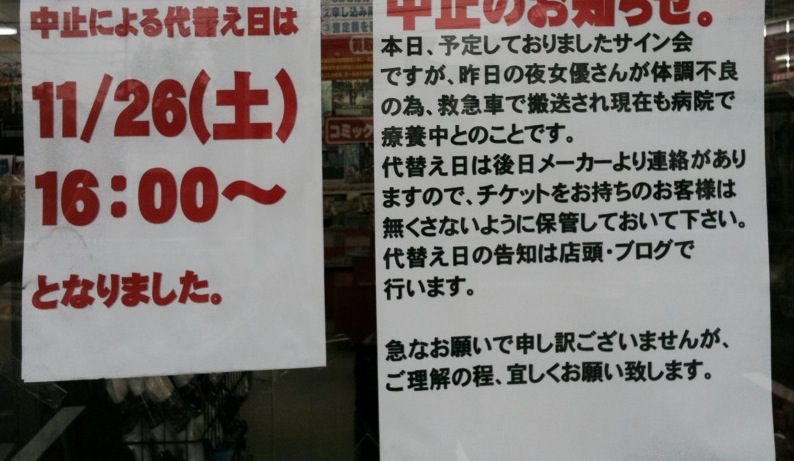 中止による代替え日は
11/26(土)
16:00～
となりました。
中止のお知らせ。
本日、予定しておりましたサイン会
ですが、昨日の夜女優さんが体調不良
の為、救急車で搬送され現在も病院で
療養中とのことです。
代替え日は後日メーカーより連絡があり
ますので、チケットをお持ちのお客様は
無くさないように保管しておいて下さい。
代替え日の告知は店頭・ブログで
行います。
急なお願いで申し訳ございませんが、
ご理解の程、宜しくお願い致します。
コミック